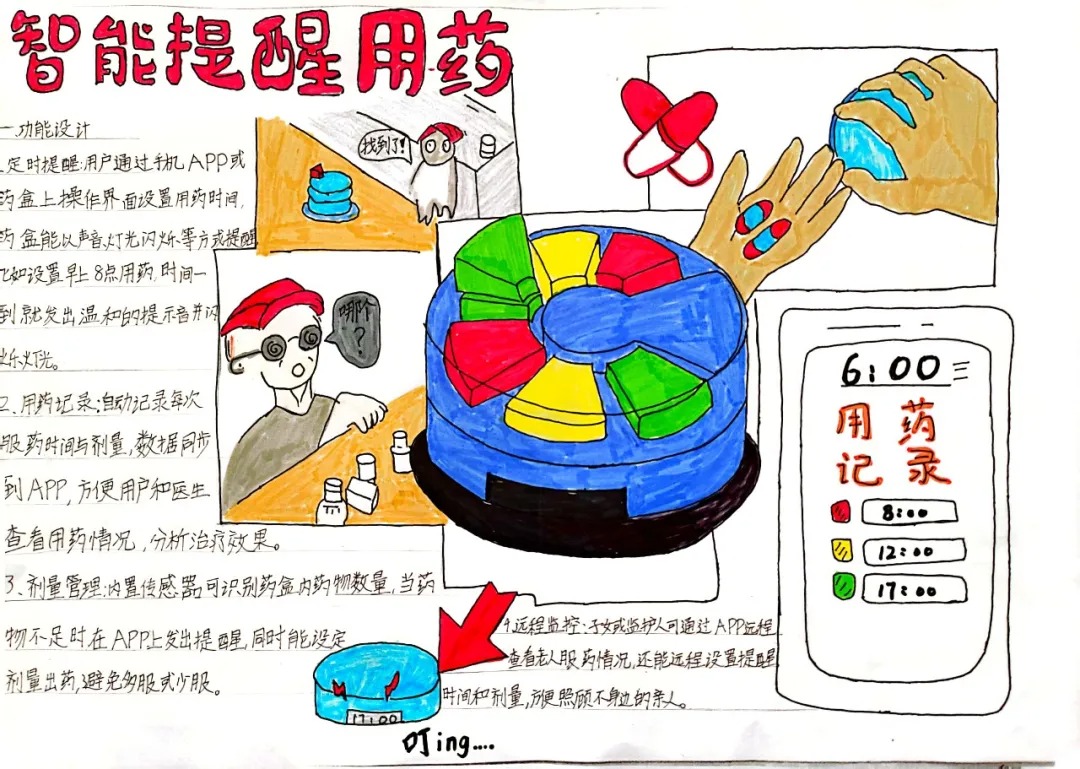 智能提醒用药
一.功能设计
1.定时提醒:用户通过手机APP或
药盒上操作界面设置用药时间,
药盒能以声音.灯光闪烁等方式提醒
比如设置早上8点用药,时间一
到就发出温和的提示音并闪
烁灯光。
2、用药记录:自动记录每次
服药时间与剂量,数据同步
到APP,方便用户和医生
查看用药情况,分析治疗效果。
3、剂量管理:内置传感器可识别药盒内药物数量,当药
物不足时在APP上发出提醒,同时能设定
剂量出药,避免多服或少服。
4.远程监控:子女或监护人可通过APP远程
查看老人服药情况,还能远程设置提醒
时间和剂量,方便照顾不身边的亲人。
找到了!
哪个
?
6:00
用药
记录
8:00
12:00
17:00
17:00
叮ing....